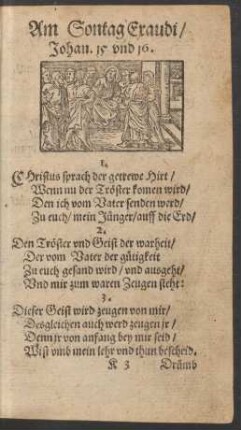 Am Sontag Exaudi /
Johan. 15 vnd 16.
1.
CHristus sprach der getrewe Hirt /
Wenn nu der Tröster komen wird /
Den ich vom Vater senden werd /
Zu euch / mein Jünger / auff die Erd /
2.
Den Tröster vnd Geist der warheit /
Der vom Vater der gütigkeit
Zu euch gesand wird / vnd ausgeht /
Vnd mir zum waren Zeugen steht:
3.
Dieser Geist wird zeugen von mir /
Desgleichen auch werd zeugen jr /
Denn jr von anfang bey mir seid /
Wist vmb mein lehr vnd thun bescheid.
K 3 Drümb